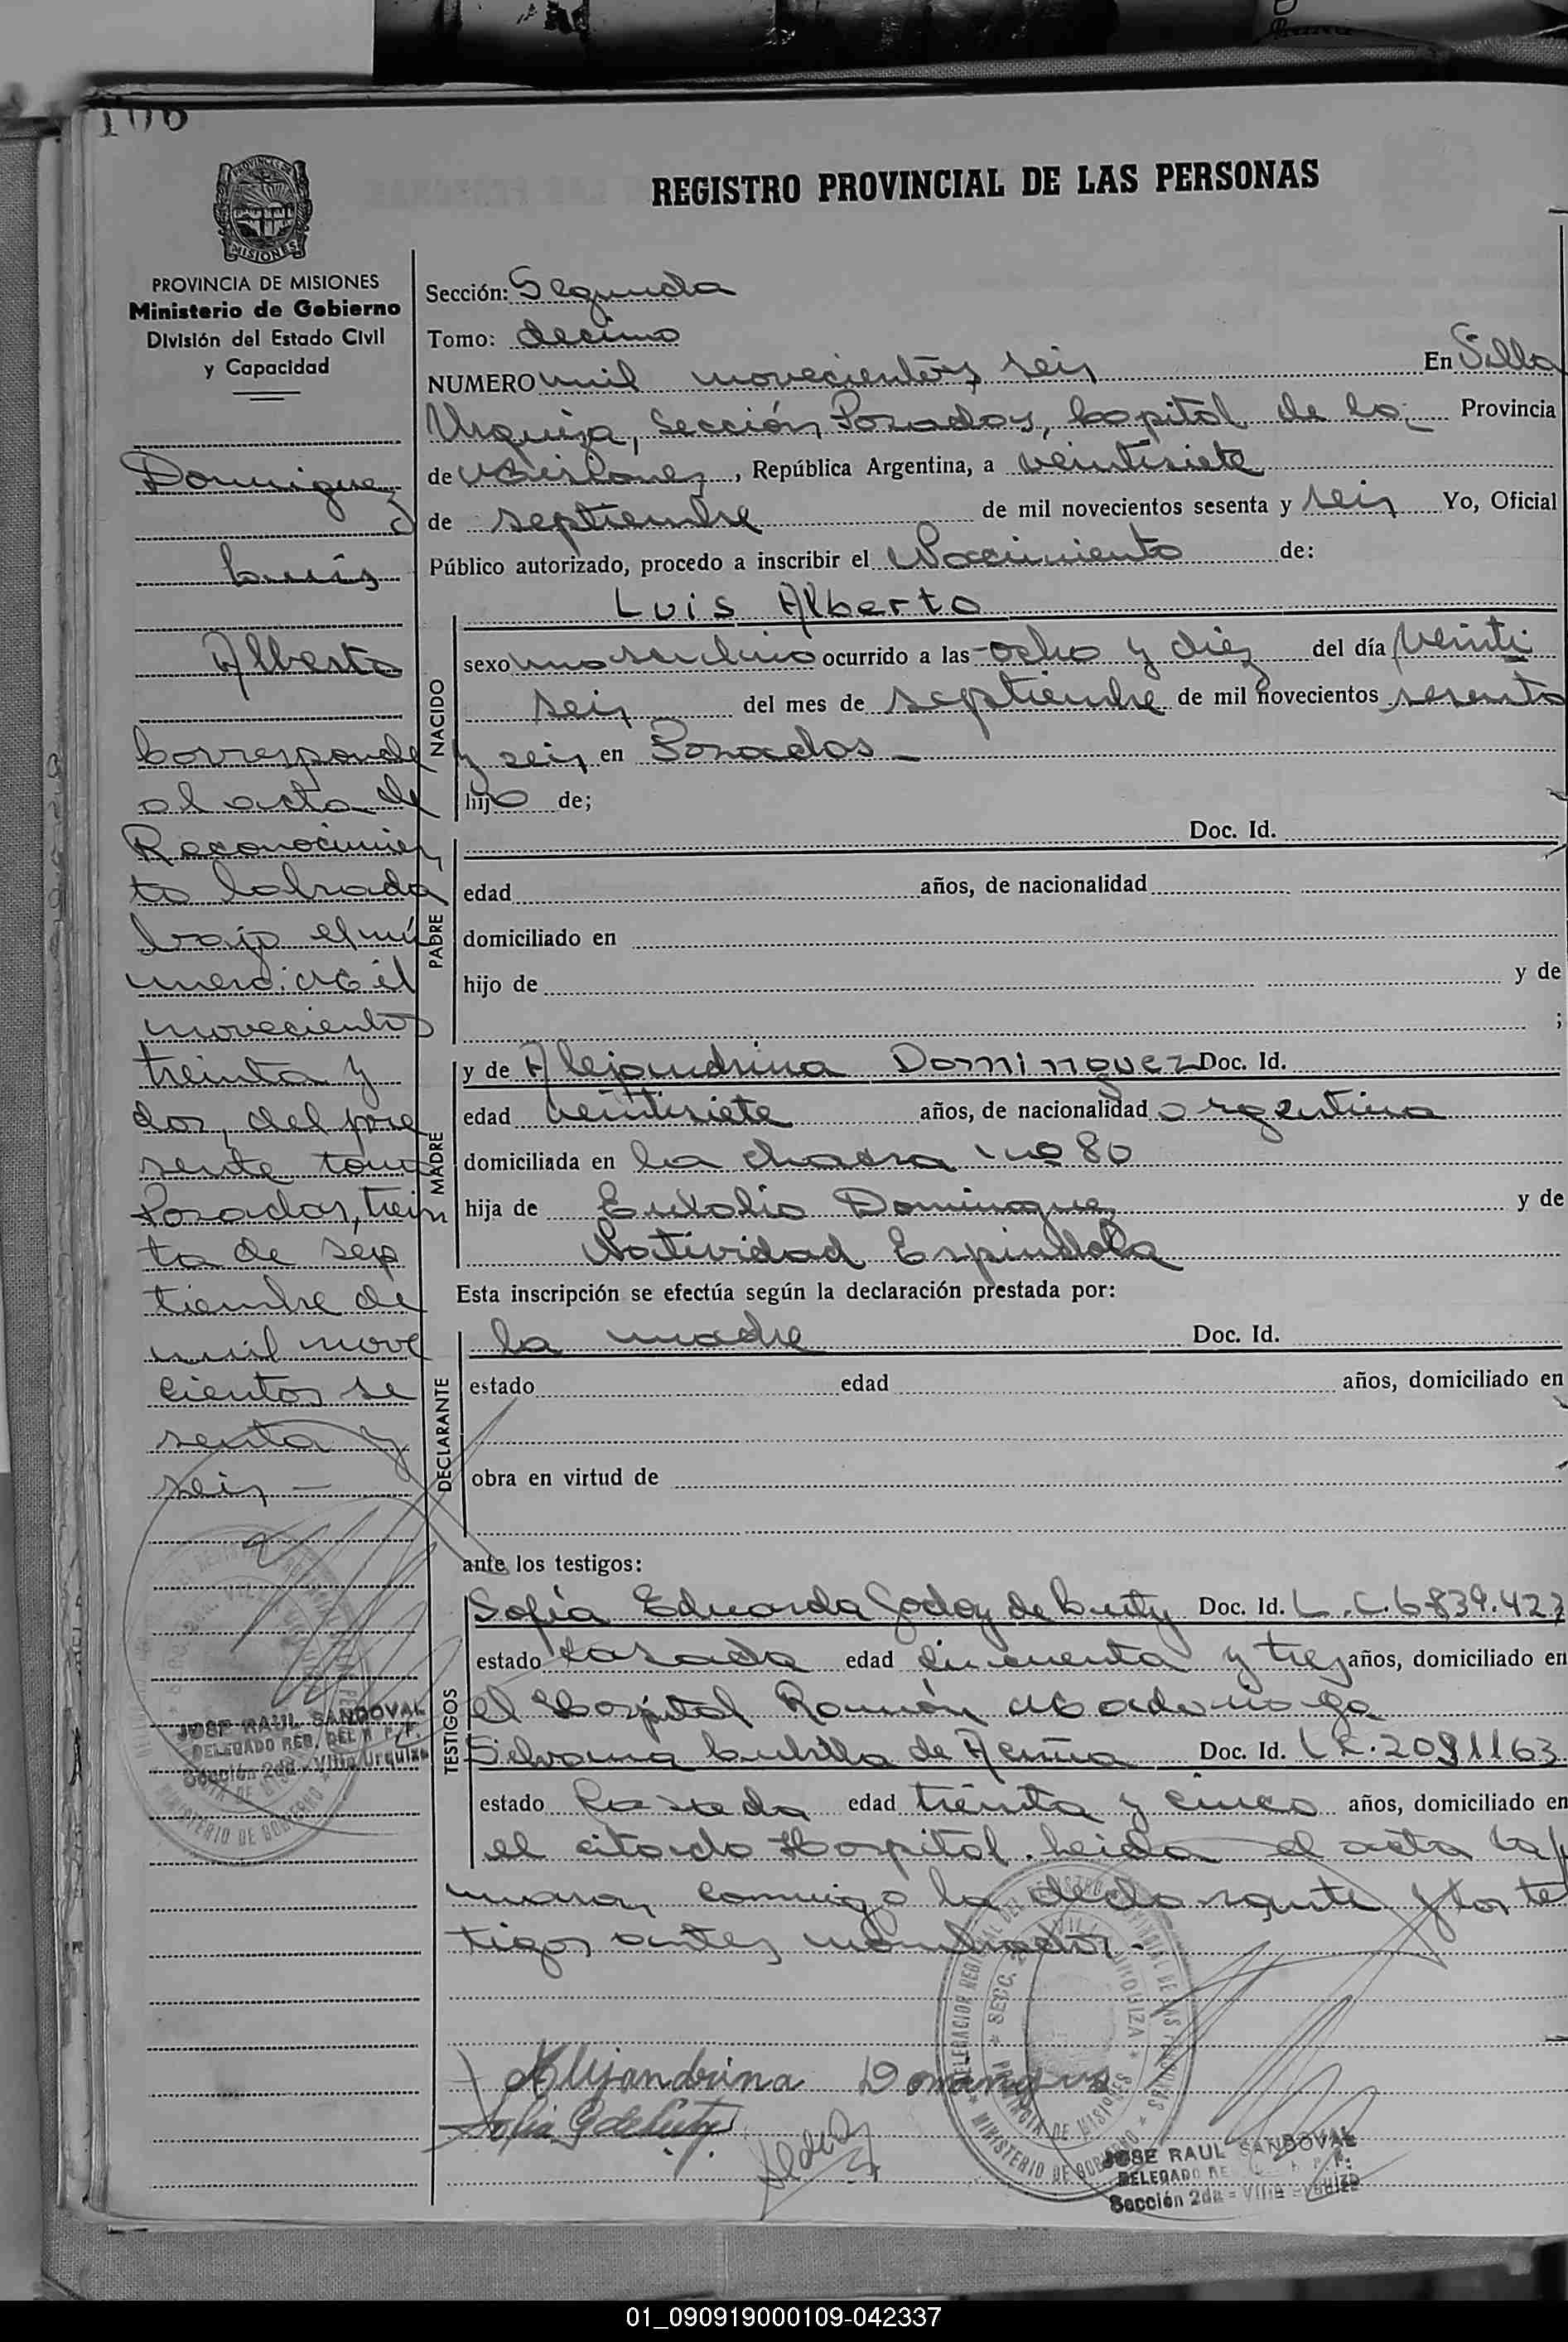 106
PROVINCIA DE MISIONES
Ministerio de Gobierno
División del Estado Civil
y Capacidad
Dominguez
Luis
Alberto
Corresponde
al acta de
Reconocimien
to labrada
bajo el nú
mero: Mil
novecientos
treinta y
dos, del pre
sente tomo
Posadas, trein
ta de sep
tiembre de
mil nove
cientos se
senta y
seis —
JOSE RAUL SANDOVAL
DELEGADO REG. DEL R. P. P.
Sección 2da - Villa Urquiza
REGISTRO PROVINCIAL DE LAS PERSONAS
Sección: Segunda
Tomo: decimo
NUMERO mil novecientos seis En Villa
Urquiza, Sección Posadas, Capital de la Provincia
de Misiones, República Argentina, a veintisiete
de septiembre de mil novecientos sesenta y seis Yo, Oficial
Público autorizado, procedo a inscribir el Nacimiento de:
Luis Alberto
NACIDO
sexo masculino ocurrido a las ocho y diez del día veinti
seis del mes de septiembre de mil novecientos sesenta
y seis en Posadas —
hijo de;
PADRE
Doc. Id.
edad años, de nacionalidad
domiciliado en
hijo de y de
;
MADRE
y de Alejandrina Dominguez Doc. Id.
edad veintisiete años, de nacionalidad argentina
domiciliada en la chacra nº 80
hija de Eulalio Dominguez y de
Natividad Espindola
Esta inscripción se efectúa según la declaración prestada por:
DECLARANTE
la madre Doc. Id.
estado edad años, domiciliado en
obra en virtud de
ante los testigos:
TESTIGOS
Sofía Eduarda Godoy de Doc. Id. L.C. 6839.427
estado casada edad cincuenta y tres años, domiciliado en
el Hospital Ramón Madariaga
Silvana de Acuña Doc. Id. L C. 2091163
estado Casada edad treinta y cinco años, domiciliado en
el citado Hospital. Leida el acta la fir
man, conmigo la declarante y los tes
tigos antes nombrados.-
Alejandrina Dominguez
Sofia G de
DELEGACION REGIONAL DEL REGISTRO PROVINCIAL DE LAS PERSONAS
SECC. 2da. VILLA URQUIZA
PROVINCIA DE MISIONES
MINISTERIO DE GOBIERNO
JOSE RAUL SANDOVAL
DELEGADO RE P. P.
Sección 2da - Villa Urquiza
01_090919000109-042337